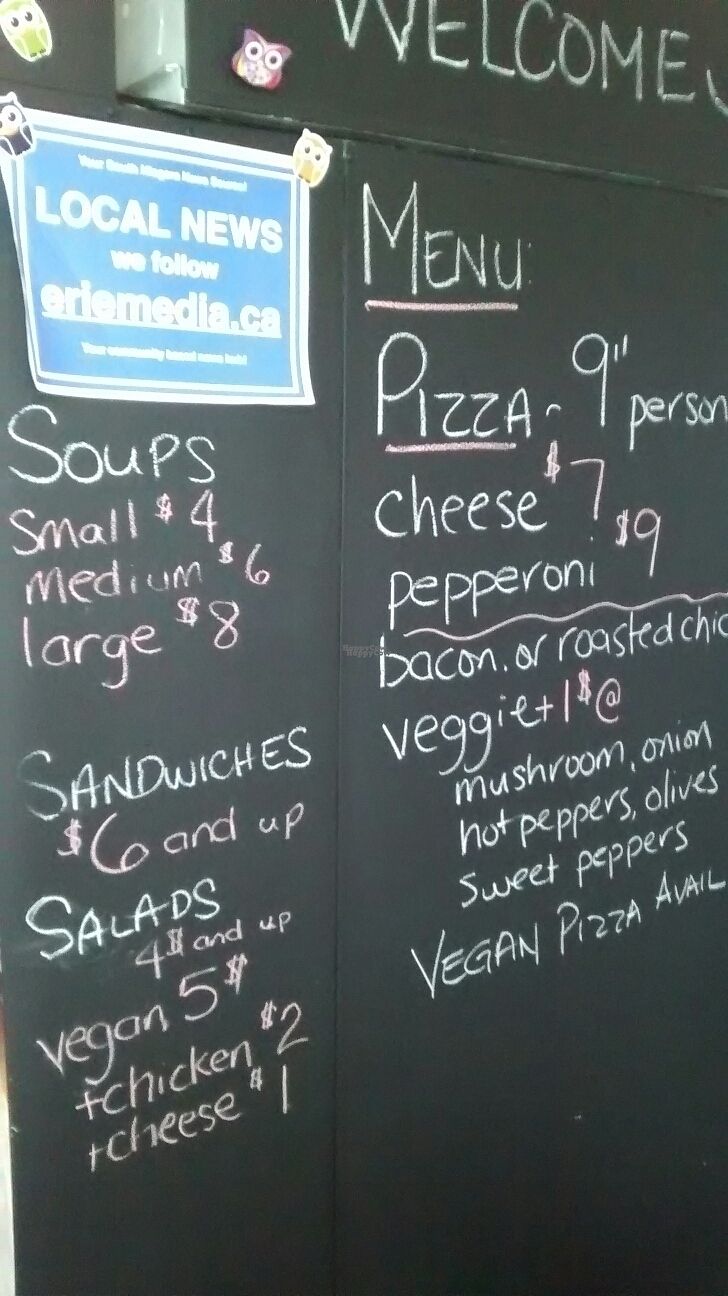 WELCOME
Your South Niagara News Source!
LOCAL NEWS
we follow
eriemedia.ca
Your community based news hub!
SOUPS
small $4
medium $6
large $8
SANDWICHES
$6 and up
SALADS
4$ and up
vegan 5$
+chicken $2
+cheese $1
MENU:
PIZZA - 9" person
cheese $7
pepperoni $9
bacon, or roasted chic
veggie +1$@
mushroom, onion
hot peppers, olives
sweet peppers
VEGAN PIZZA AVAIL
HappyCow
HappyCow